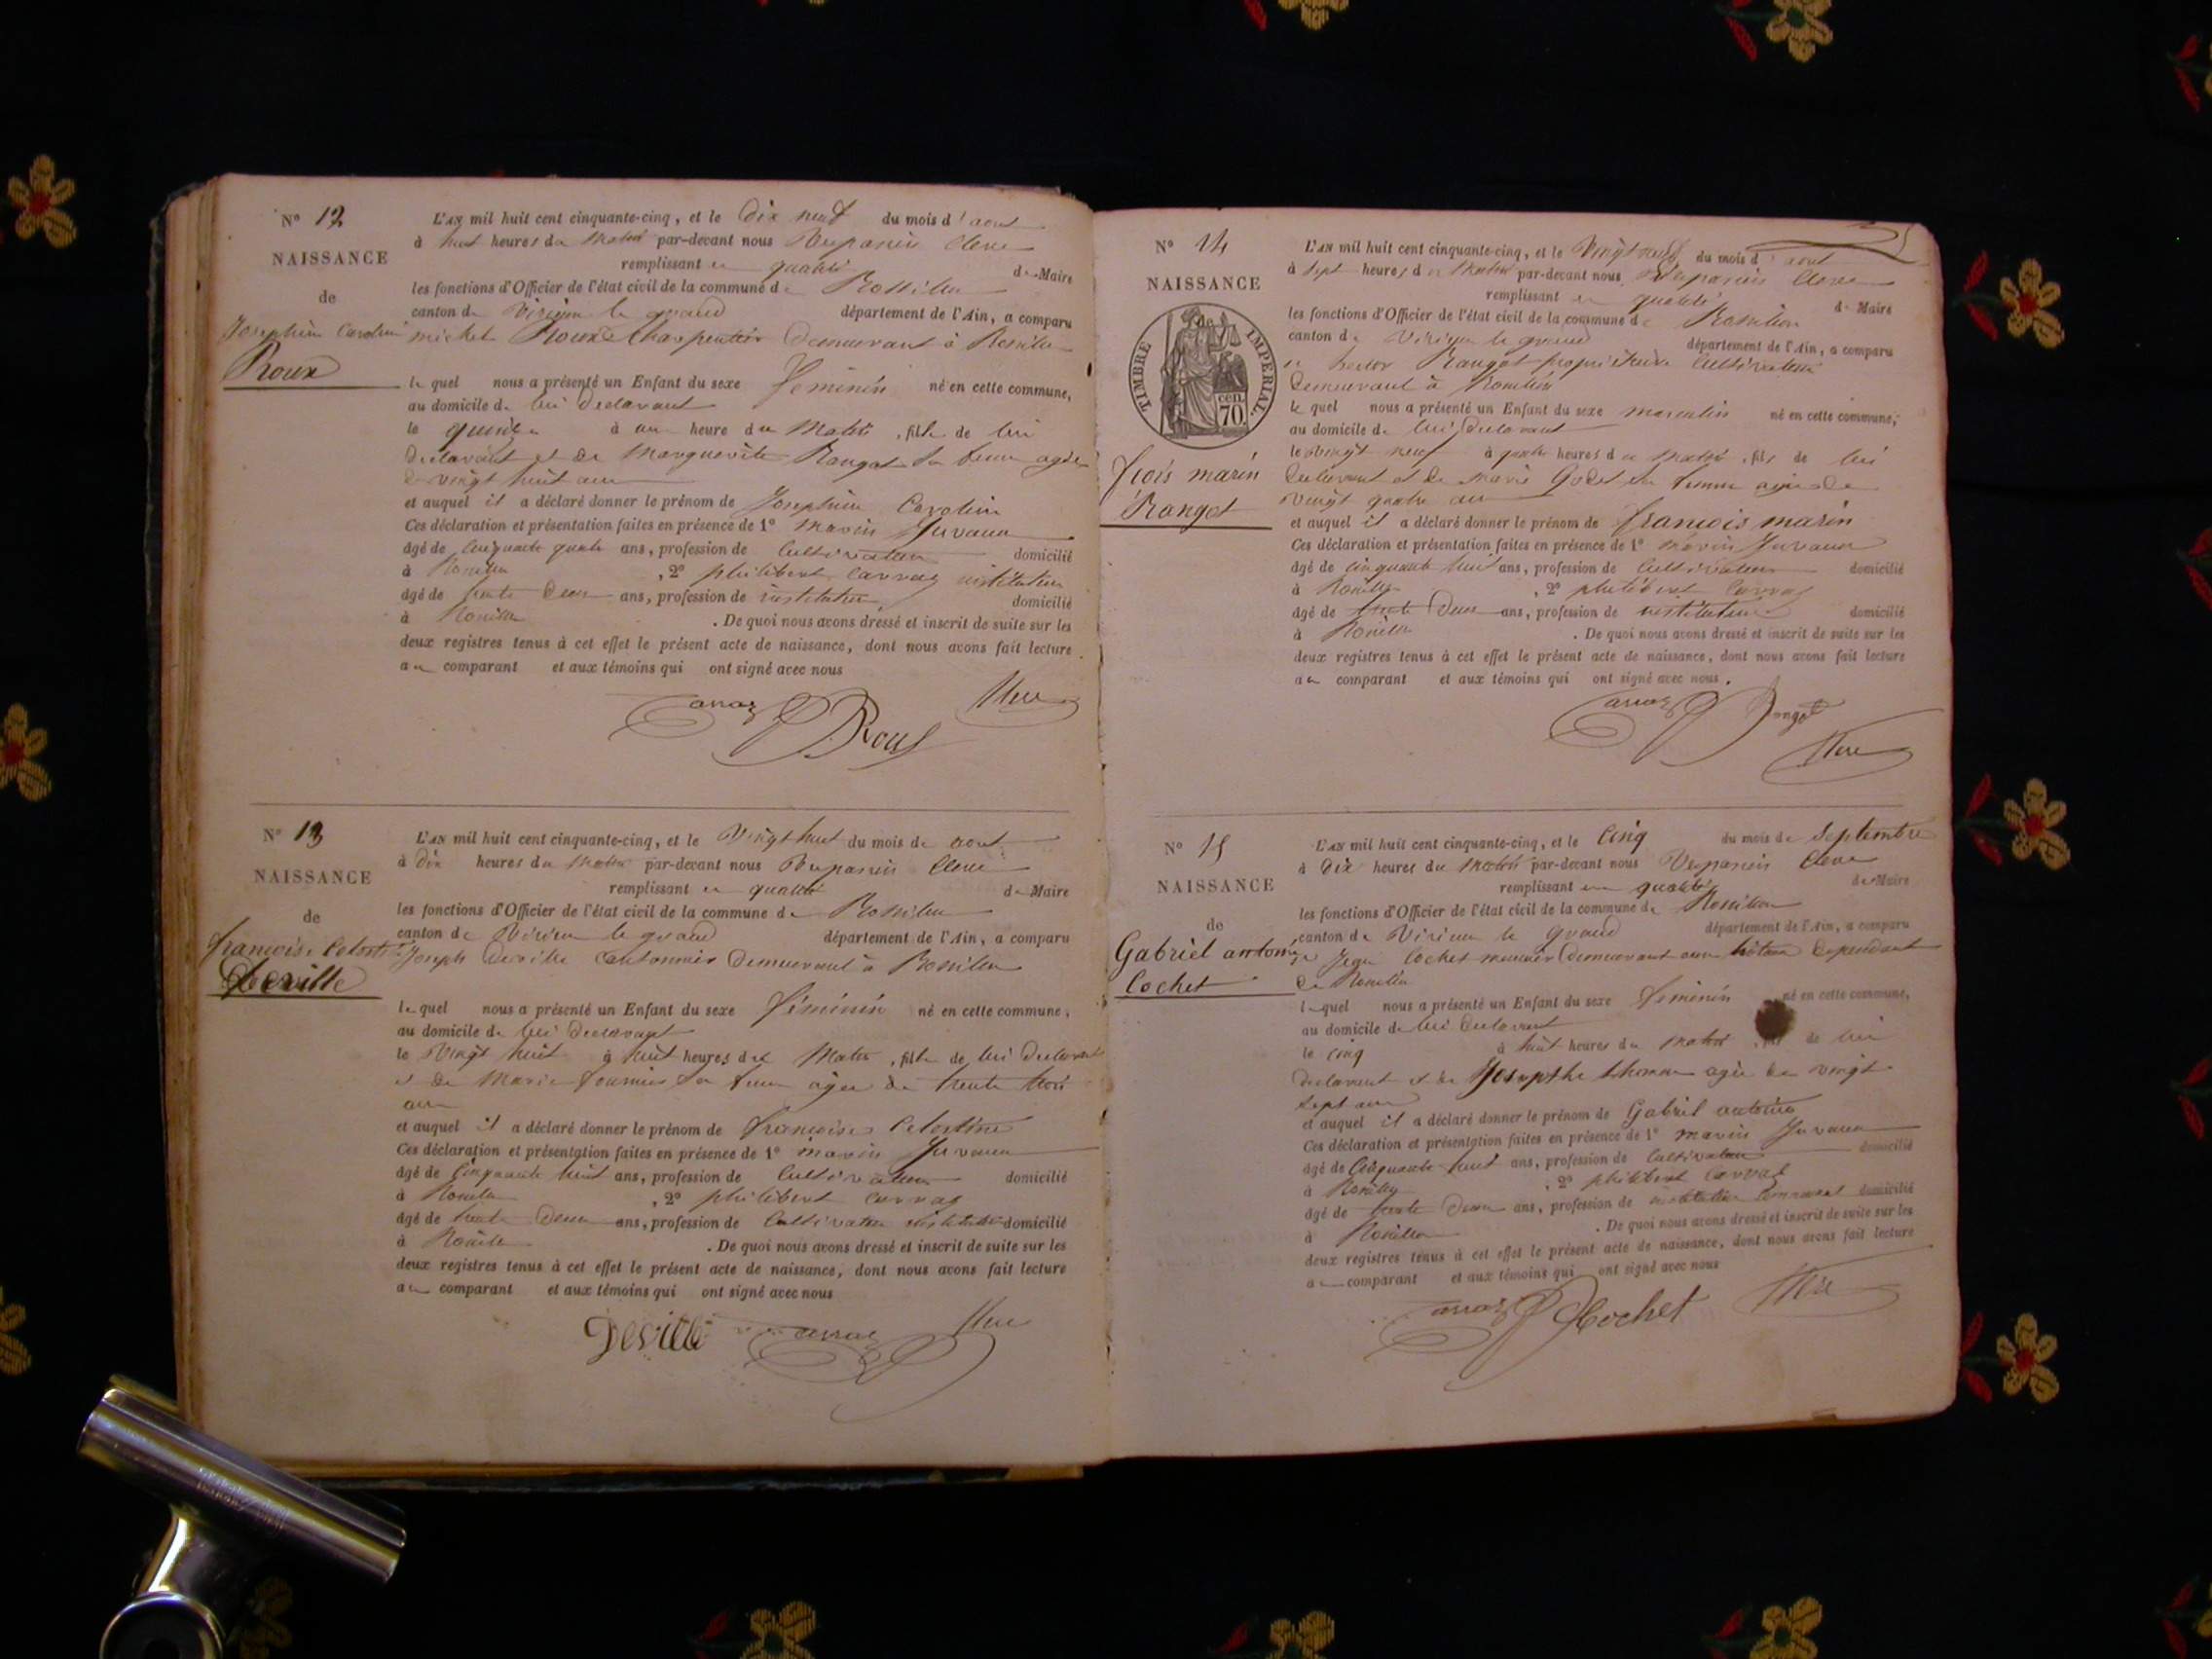 N° 12
NAISSANCE
de
Josephine Caroline
Roux
L'AN mil huit cent cinquante-cinq, et le dix neuf du mois d'aout
à huit heures du matin par-devant nous
remplissant en qualité de Maire
les fonctions d'Officier de l'état civil de la commune de Rossillon
canton de Virieu le grand département de l'Ain, a comparu
michel Roux Charpentier demeurant à Rossillon
lequel nous a présenté un Enfant du sexe féminin né en cette commune,
au domicile de lui declarant
le quinze à une heure du matin, fille de lui
declarant et de Marguerite Rangot sa femme agée
de vingt huit ans
et auquel il a déclaré donner le prénom de Josephine Caroline
Ces déclaration et présentation faites en présence de 1° marin Juvanon
âgé de cinquante ans, profession de Cultivateur domicilié
à Rossillon, 2° philibert Carraz instituteur
âgé de trente deux ans, profession de instituteur domicilié
à Rossillon. De quoi nous avons dressé et inscrit de suite sur les
deux registres tenus à cet effet le présent acte de naissance, dont nous avons fait lecture
au comparant et aux témoins qui ont signé avec nous
Carraz Roux
N° 13
NAISSANCE
de
francoise Celestine
Deville
L'AN mil huit cent cinquante-cinq, et le Vingt huit du mois de aout
à dix heures du matin par-devant nous
remplissant en qualité de Maire
les fonctions d'Officier de l'état civil de la commune de Rossillon
canton de Virieu le grand département de l'Ain, a comparu
Joseph Deville cantonnier demeurant à Rossillon
lequel nous a présenté un Enfant du sexe féminin né en cette commune,
au domicile de lui declarant
le Vingt huit à huit heures du Matin, fille de lui declarant
et de Marie fournier sa femme agée de trente trois
ans
et auquel il a déclaré donner le prénom de francoise Celestine
Ces déclaration et présentation faites en présence de 1° marin Juvanon
âgé de Cinquante huit ans, profession de Cultivateur domicilié
à Rossillon, 2° philibert Carraz
âgé de trente deux ans, profession de Cultivateur instituteur domicilié
à Rossillon. De quoi nous avons dressé et inscrit de suite sur les
deux registres tenus à cet effet le présent acte de naissance, dont nous avons fait lecture
au comparant et aux témoins qui ont signé avec nous
Deville Carraz
N° 14
NAISSANCE
de
TIMBRE IMPERIAL
70 cen.
frois marin
Rangot
L'AN mil huit cent cinquante-cinq, et le Vingt neuf du mois d'aout
à sept heures du matin par-devant nous
remplissant en qualité de Maire
les fonctions d'Officier de l'état civil de la commune de Rossillon
canton de Virieu le grand département de l'Ain, a comparu
Rangot propriétaire Cultivateur
demeurant à Rossillon
lequel nous a présenté un Enfant du sexe masculin né en cette commune,
au domicile de lui declarant
le Vingt neuf à quatre heures du matin, fils de lui
declarant et de marie Godet sa femme agée de
vingt quatre ans
et auquel il a déclaré donner le prénom de francois marin
Ces déclaration et présentation faites en présence de 1° marin Juvanon
âgé de cinquante huit ans, profession de Cultivateur domicilié
à Rossillon, 2° philibert Carraz
âgé de trente deux ans, profession de instituteur domicilié
à Rossillon. De quoi nous avons dressé et inscrit de suite sur les
deux registres tenus à cet effet le présent acte de naissance, dont nous avons fait lecture
au comparant et aux témoins qui ont signé avec nous.
Carraz Rangot
N° 15
NAISSANCE
de
Gabriel antoine
Cochet
L'AN mil huit cent cinquante-cinq, et le cinq du mois de Septembre
à dix heures du matin par-devant nous
remplissant en qualité de Maire
les fonctions d'Officier de l'état civil de la commune de Rossillon
canton de Virieu le grand département de l'Ain, a comparu
Jean Cochet meunier demeurant dependant
de Rossillon
lequel nous a présenté un Enfant du sexe feminin né en cette commune,
au domicile de lui declarant
le cinq à huit heures du matin, de lui
declarant et de Josepthe agée de vingt
sept ans
et auquel il a déclaré donner le prénom de Gabriel antoine
Ces déclaration et présentation faites en présence de 1° marin Juvanon
âgé de Cinquante huit ans, profession de Cultivateur domicilié
à Rossillon, 2° philibert Carraz
âgé de trente deux ans, profession de instituteur communal domicilié
à Rossillon. De quoi nous avons dressé et inscrit de suite sur les
deux registres tenus à cet effet le présent acte de naissance, dont nous avons fait lecture
au comparant et aux témoins qui ont signé avec nous
Carraz Cochet